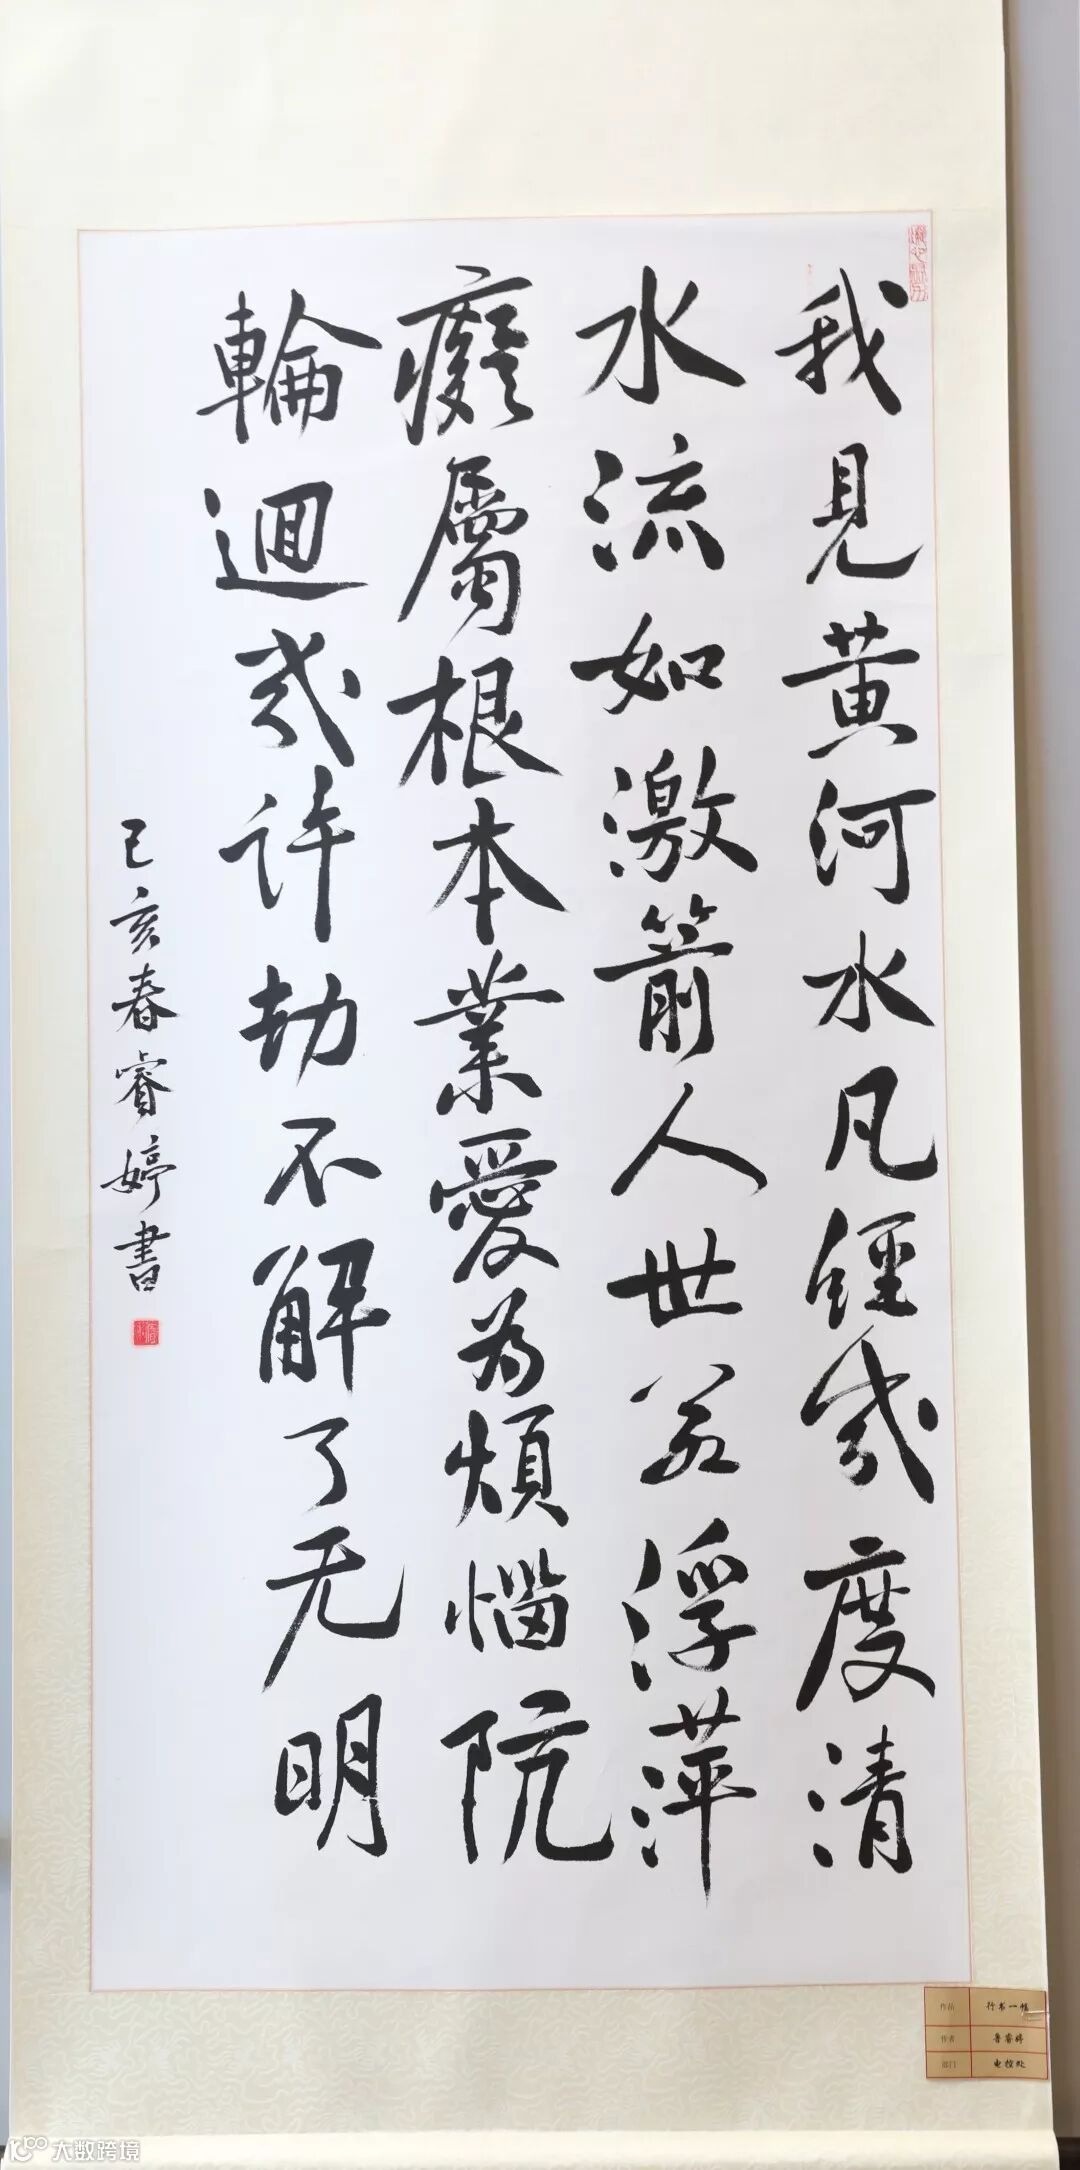 我見黃河水凡經幾度清
水流如激箭人世若浮萍
癡屬根本業愛為煩惱阬
輪迴幾許劫不解了无明
己亥春睿婷書
作品 行书一幅
作者 鲁睿婷
部门 电控处
大数跨境